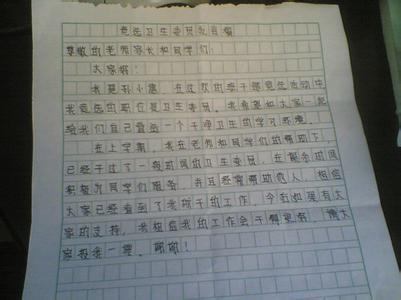 竞选卫生委员发言稿
尊敬的老师家长和同学们:
大家好!
我是孙小惠,在这次的班干部竞选活动中,
我竞选的职位是卫生委员。我希望和大家一起
给我们自己营造一个干净卫生的学习环境。
在上学期,我在老师和同学们的帮助下,
已经干过了一段时间的卫生委员,在服务班级
积极为同学们服务,并且经常帮助他人,相信
大家已经看到了我所干的工作,今后如果有大
家的支持,我相信我的工作会干得更好,请大
家投我一票。谢谢!